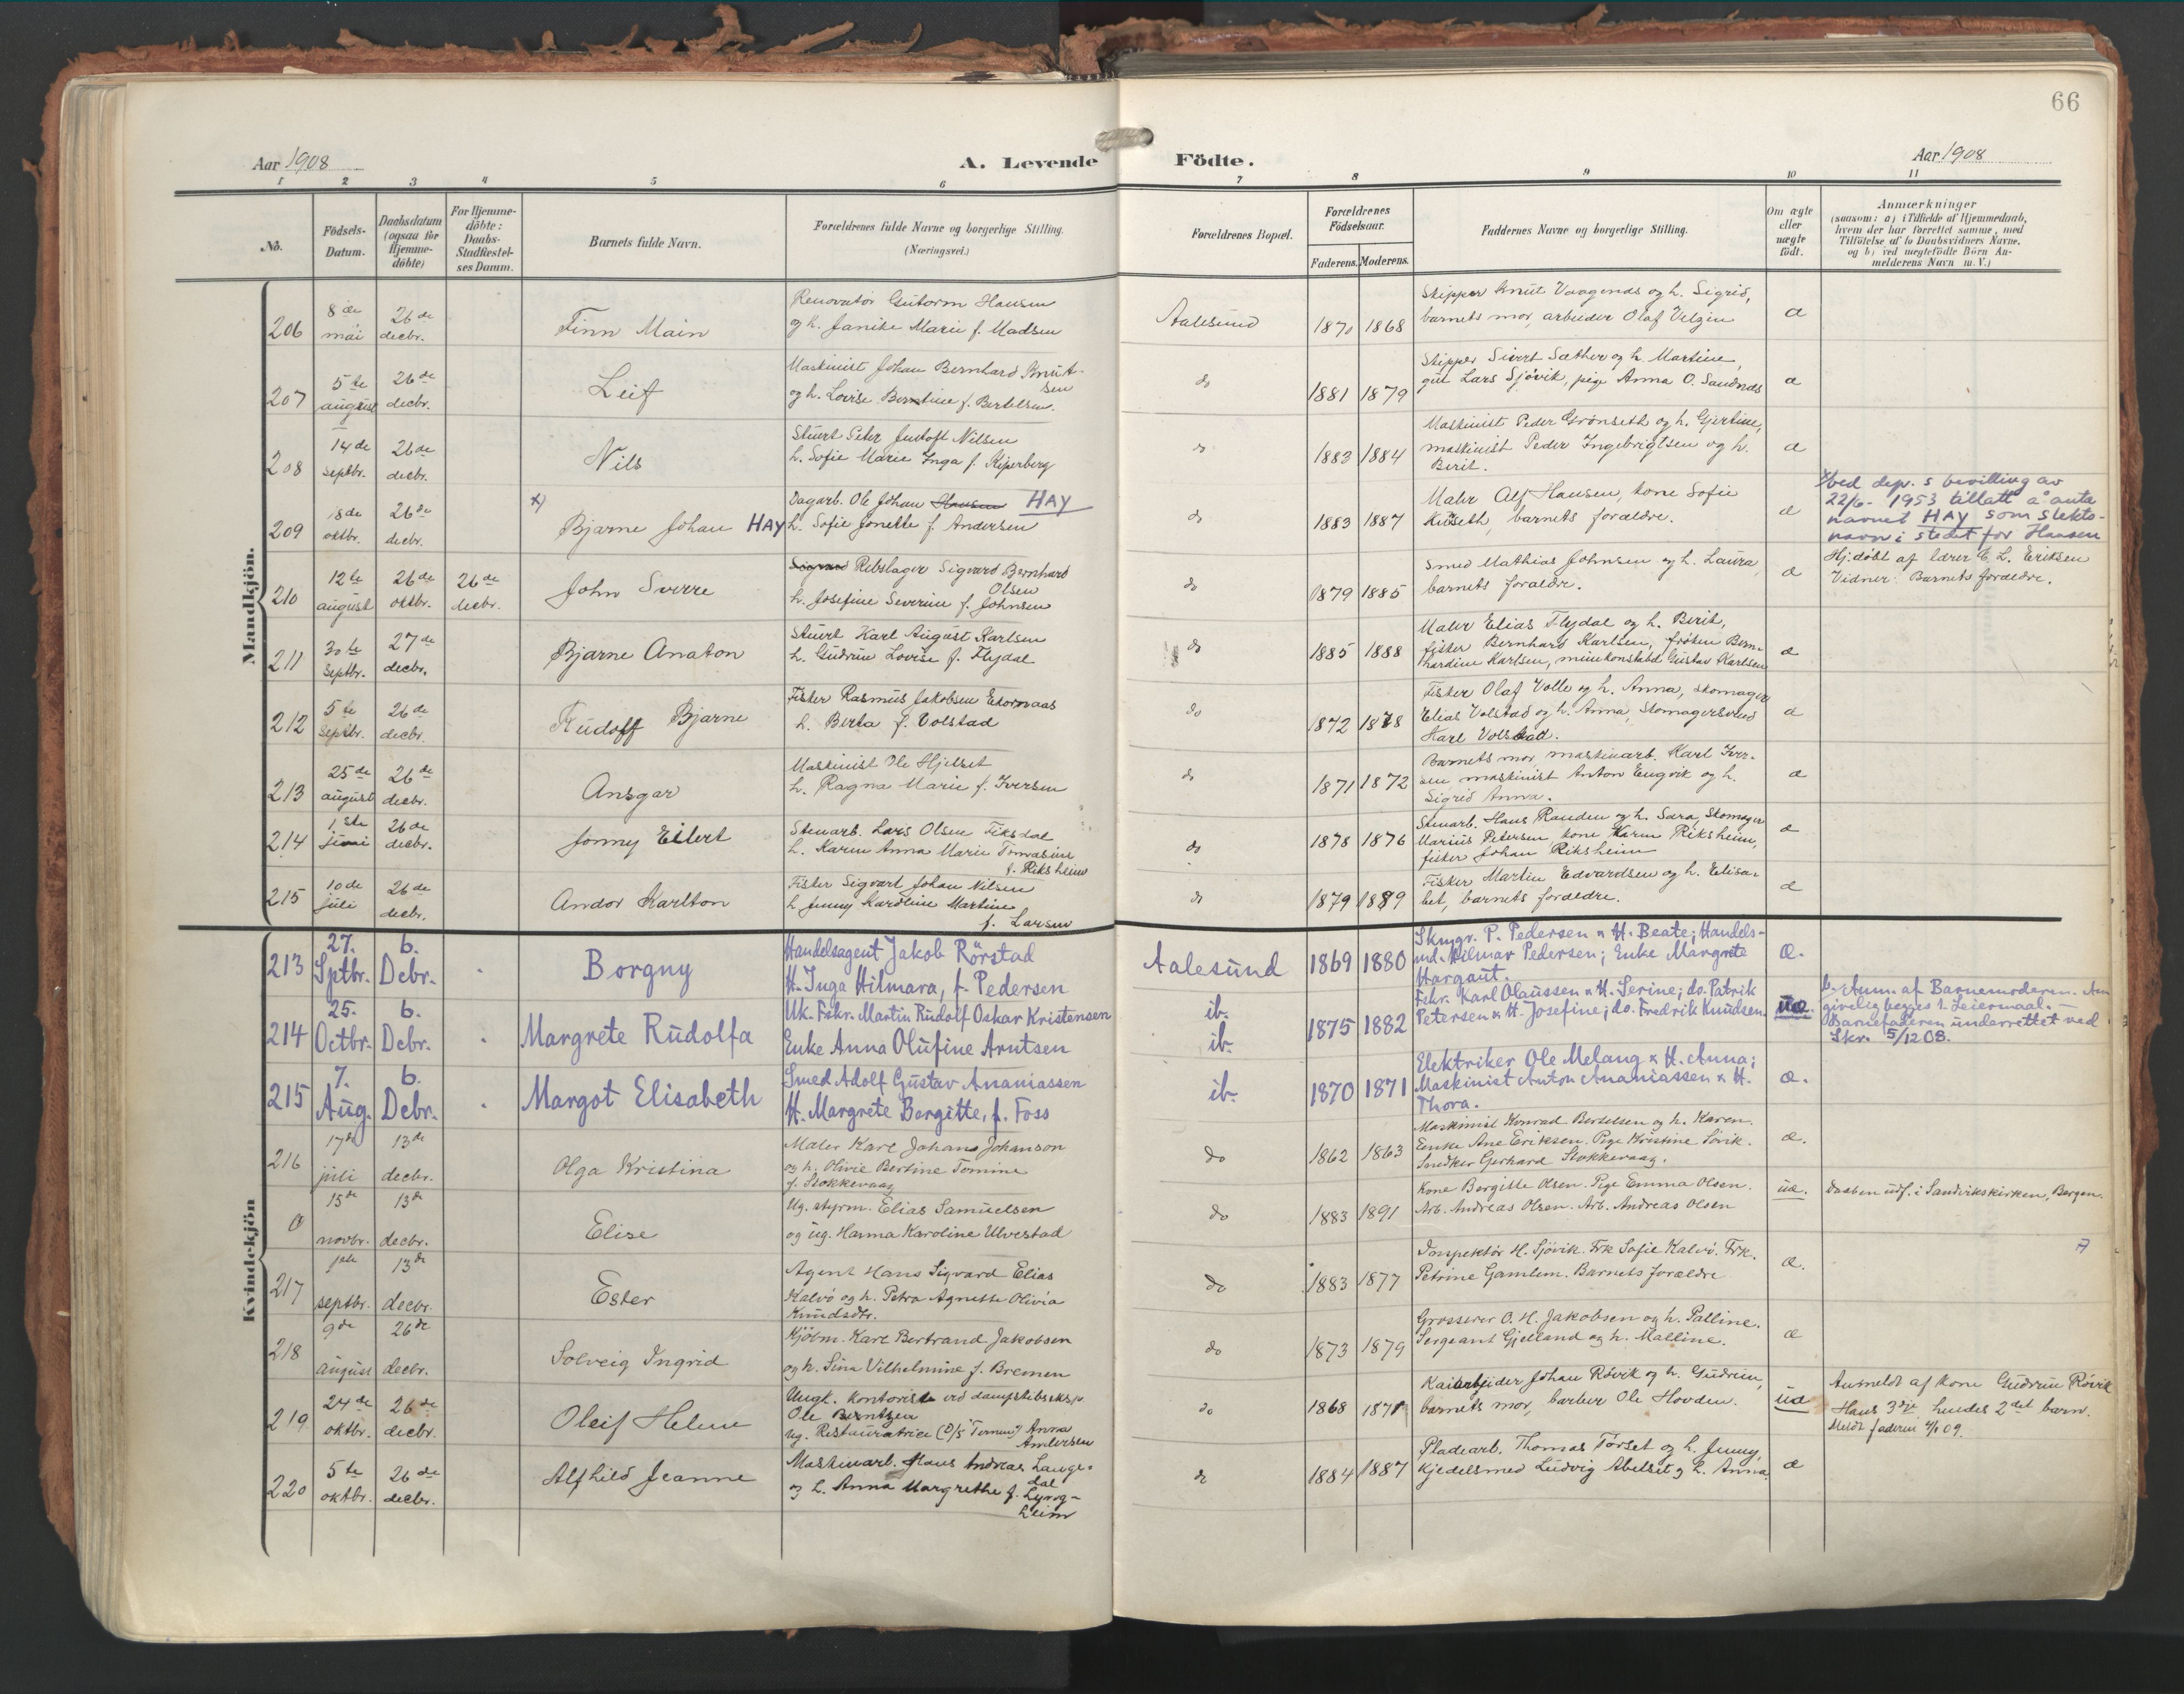 66
Aar 1908
A. Levende Födte.
Aar 1908
1 2 3 4 5 6 7 8 9 10 11
No.
Födsels-Datum.
Daabsdatum (ogsaa for Hjemme-döbte)
For Hjemme-döbte: Daabs-Stadfæstel-ses Datum.
Barnets fulde Navn.
Forældrenes fulde Navne og borgerlige Stilling. (Næringsvei.)
Forældrenes Bopæl.
Forældrenes Födselsaar.
Faderens. Moderens.
Faddernes Navne og borgerlige Stilling.
Om ægte eller uægte födt.
Anmærkninger
(saasom: a) i Tilfælde af Hjemmedaab,
hvem der har forrettet samme, med
Tilföielse af to Daabsvidners Navne.
og b) ved uægtefödte Börn An-
melderens Navn m. V.)
Mandkjön.
206 8de mai 26de decbr. Finn Main
Renovatör Gutorm Hansen
og h. Janike Marie f. Madsen
Aalesund 1870 1868
Skipper Knut Vaagenes og h. Sigrid,
barnets mor, arbeider Olaf
æ
207 5te august 26de decbr. Leif
Maskinist Johan Bernhard Knut-
sen
og h. Lovise Berntine f. Bertelsen.
do 1881 1879
Skipper Sivert Sæther og h. Martine,
gut Lars Sjövik, pige Anna O. Sandnes
æ
208 14de septbr. 26de decbr. Nils
Stuert Peter Nilsen
h. Sofie Marie Inga f. Kiperberg
do 1883 1884
Maskinist Peder Grönseth og h. Gjertine,
maskinist Peder Ingebrigtsen og h.
Berit.
æ
209 18de oktbr. 26de decbr. x) Bjarne Johan HAY
Dagarb. Ole Johan Hansen HAY
h. Sofie Jonette f. Andersen
do 1883 1887
Maler Alf Hansen, kone Sofie
barnets forældre.
æ
x) ved dep.s bevilling av
22/6-1953 tillatt å anta
navnet HAY som slekts-
navn i stedet for Hansen
210 12te august 26de oktbr. 26de decbr. John Sverre
Sigvard Rebslager Sigvard Bernhard
Olsen
h. Josefine Severine f. Johnsen
do 1879 1885
Smed Mathias Johnsen og h. Laura,
barnets forældre.
æ
Hj.döbt af lærer E. L. Eriksen
Vidner: Barnets forældre.
211 30te septbr. 27de decbr. Bjarne Anaton
Stuert Karl August Karlsen
h. Gudrun Lovise f. Flydal
do 1885 1888
Maler Elias Flydal og h. Berit,
fisker Bernhard Karlsen, fröken Bern-
hardine Karlsen, minekonstabel Gustav Karlsen
æ
212 5te septbr. 26de decbr. Rudolf Bjarne
Fisker Rasmus Jakobsen Ekornaas
h. Berta f. Volstad
do 1872 1878
Fisker Olaf Volle og h. Anna, skomager
Elias Volstad og h. Anna, Skomagersvend
Karl Volstad.
æ
213 25de august 26de decbr. Ansgar
Maskinist Ole Hjelset
h. Ragna Marie f. Iversen
do 1871 1872
Barnets mor, maskinarb. Karl Iver-
sen, maskinist Anton Engvik og h.
Sigrid Anna.
æ
214 1ste juni 26de decbr. Jonny Eilert
Stenarb. Lars Olsen Fiksdal
h. Karen Anna Marie Tomasine
f. Riksheim
do 1878 1876
Stenarb. Hans Randen og h. Sara, Skomager
Marius Petersen, kone Karen Riksheim,
fisker Johan Riksheim
æ
215 10de juli 26de decbr. Andor Karlton
Fisker Sigvart Johan Nilsen
h Jenny Karoline Martine
f. Larsen
do 1879 1889
Fisker Martin Edvardsen og h. Elisa-
bet, barnets forældre.
æ
Kvindekjön
213 27. Sptbr. 6. Debr. Borgny
Handelsagent Jakob Rörstad
H. Inga Hilmara, f. Pedersen
Aalesund 1869 1880
Skmgr. P. Pedersen & H. Beate; Handels-
md. Hilmar Pedersen; Enke Margrete
Hargaut.
æ.
214 25. Octbr. 6. Debr. Margrete Rudolfa
Uk. Fskr. Martin Rudolf Oskar Kristensen
Enke Anna Olufine Arntsen
ib. ib. 1875 1882
Fskr. Karl Olaussen & H. Serine; do. Patrik
Petersen & H. Josefine; do. Fredrik Knudsen.
uæ.
b. Anm. af Barnemoderen. An-
givelig begges 1. Leiermaal.
Barnefaderen underrettet ved
Skr. 5/12 08.
215 7. Aug. 6. Debr. Margot Elisabeth
Smed Adolf Gustav Ananiassen
H. Margrete Bergitte, f. Foss
ib. 1870 1871
Elektriker Ole Melang & H. Anna;
Maskinist Anton Ananiassen & H.
Thora.
æ.
216 17de juli 13de decbr. Olga Kristina
Maler Karl Johans Johanson
og h. Olivie Bertine Tomine
f. Stokkevaag
do 1862 1863
Maskinist Konrad Bertelsen og h. Karen.
Enke Ane Eriksen. Pige Kristine Sövik.
Snedker Gerhard Stokkevaag.
æ.
0 15de novbr. 13de decbr. Elise
Ug. styrm. Elias Samuelsen
og ug. Hanna Karoline Ulvestad
do 1883 1891
Kone Bergitte Olsen. Pige Emma Olsen.
Arb. Andreas Olsen. Arb. Andreas Olsen
uæ.
Daaben udf. i Sandvikskirken, Bergen.
217 1ste septbr. 13de decbr. Ester
Agent Hans Sigvard Elias
Kalvö og h. Petra Agnette Olivia
Knudsdtr.
do 1883 1877
Inspektör H. Sjövik. Frk Sofie Kalvö. Frk.
Petrine Gamlem. Barnets forældre
æ.
218 9de august 26de decbr. Solveig Ingrid
Kjöbm. Karl Bertrand Jakobsen
og h. Sina Vilhelmine f. Bremen
do 1873 1879
Grosserer O. H. Jakobsen og h. Palline.
Sergeant Gjelland og h. Malline.
æ
219 24de oktbr. 26de decbr. Oleif Helene
Ungk. kontorist ved dampskibseksp.
Ole Berntzen
ug. Restauratrice (D/S Ternen) Anna
Andersen
do 1868 1871
Kaiarbeider Johan Rövik og h. Gudrun,
barnets mor, barber Ole Hovden.
uæ
Anmeldt af kone Gudrun Rövik
Hans 3dje hendes 2det barn.
Meldt faderen 4/1 09.
220 5te oktbr. 26de decbr. Alfhild Jeanne
Maskinarb. Hans Andreas Lange-
dal
og h. Anna Margrethe f. Lyng-
heim
do 1884 1887
Pladearb. Thomas Törset og h. Jenny,
Kjedelsmed Ludvig Abelset og h. Anna.
æ